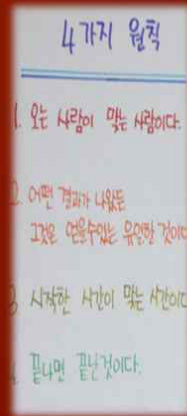 4가지 원칙
1. 오는 사람이 맞는 사람이다.
2. 어떤 결과가 나왔든
그것은 얻을수있는 유일한 것이다
3 시작한 시간이 맞는 시간이다
4. 끝나면 끝난것이다.